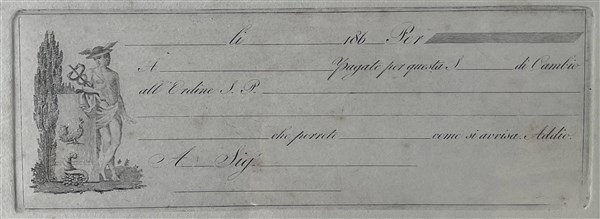 li 186 Per
A Pagate per questa S. di Cambio
all'Ordine S. P.
che porrete come si avvisa. Addio.
A Sig.